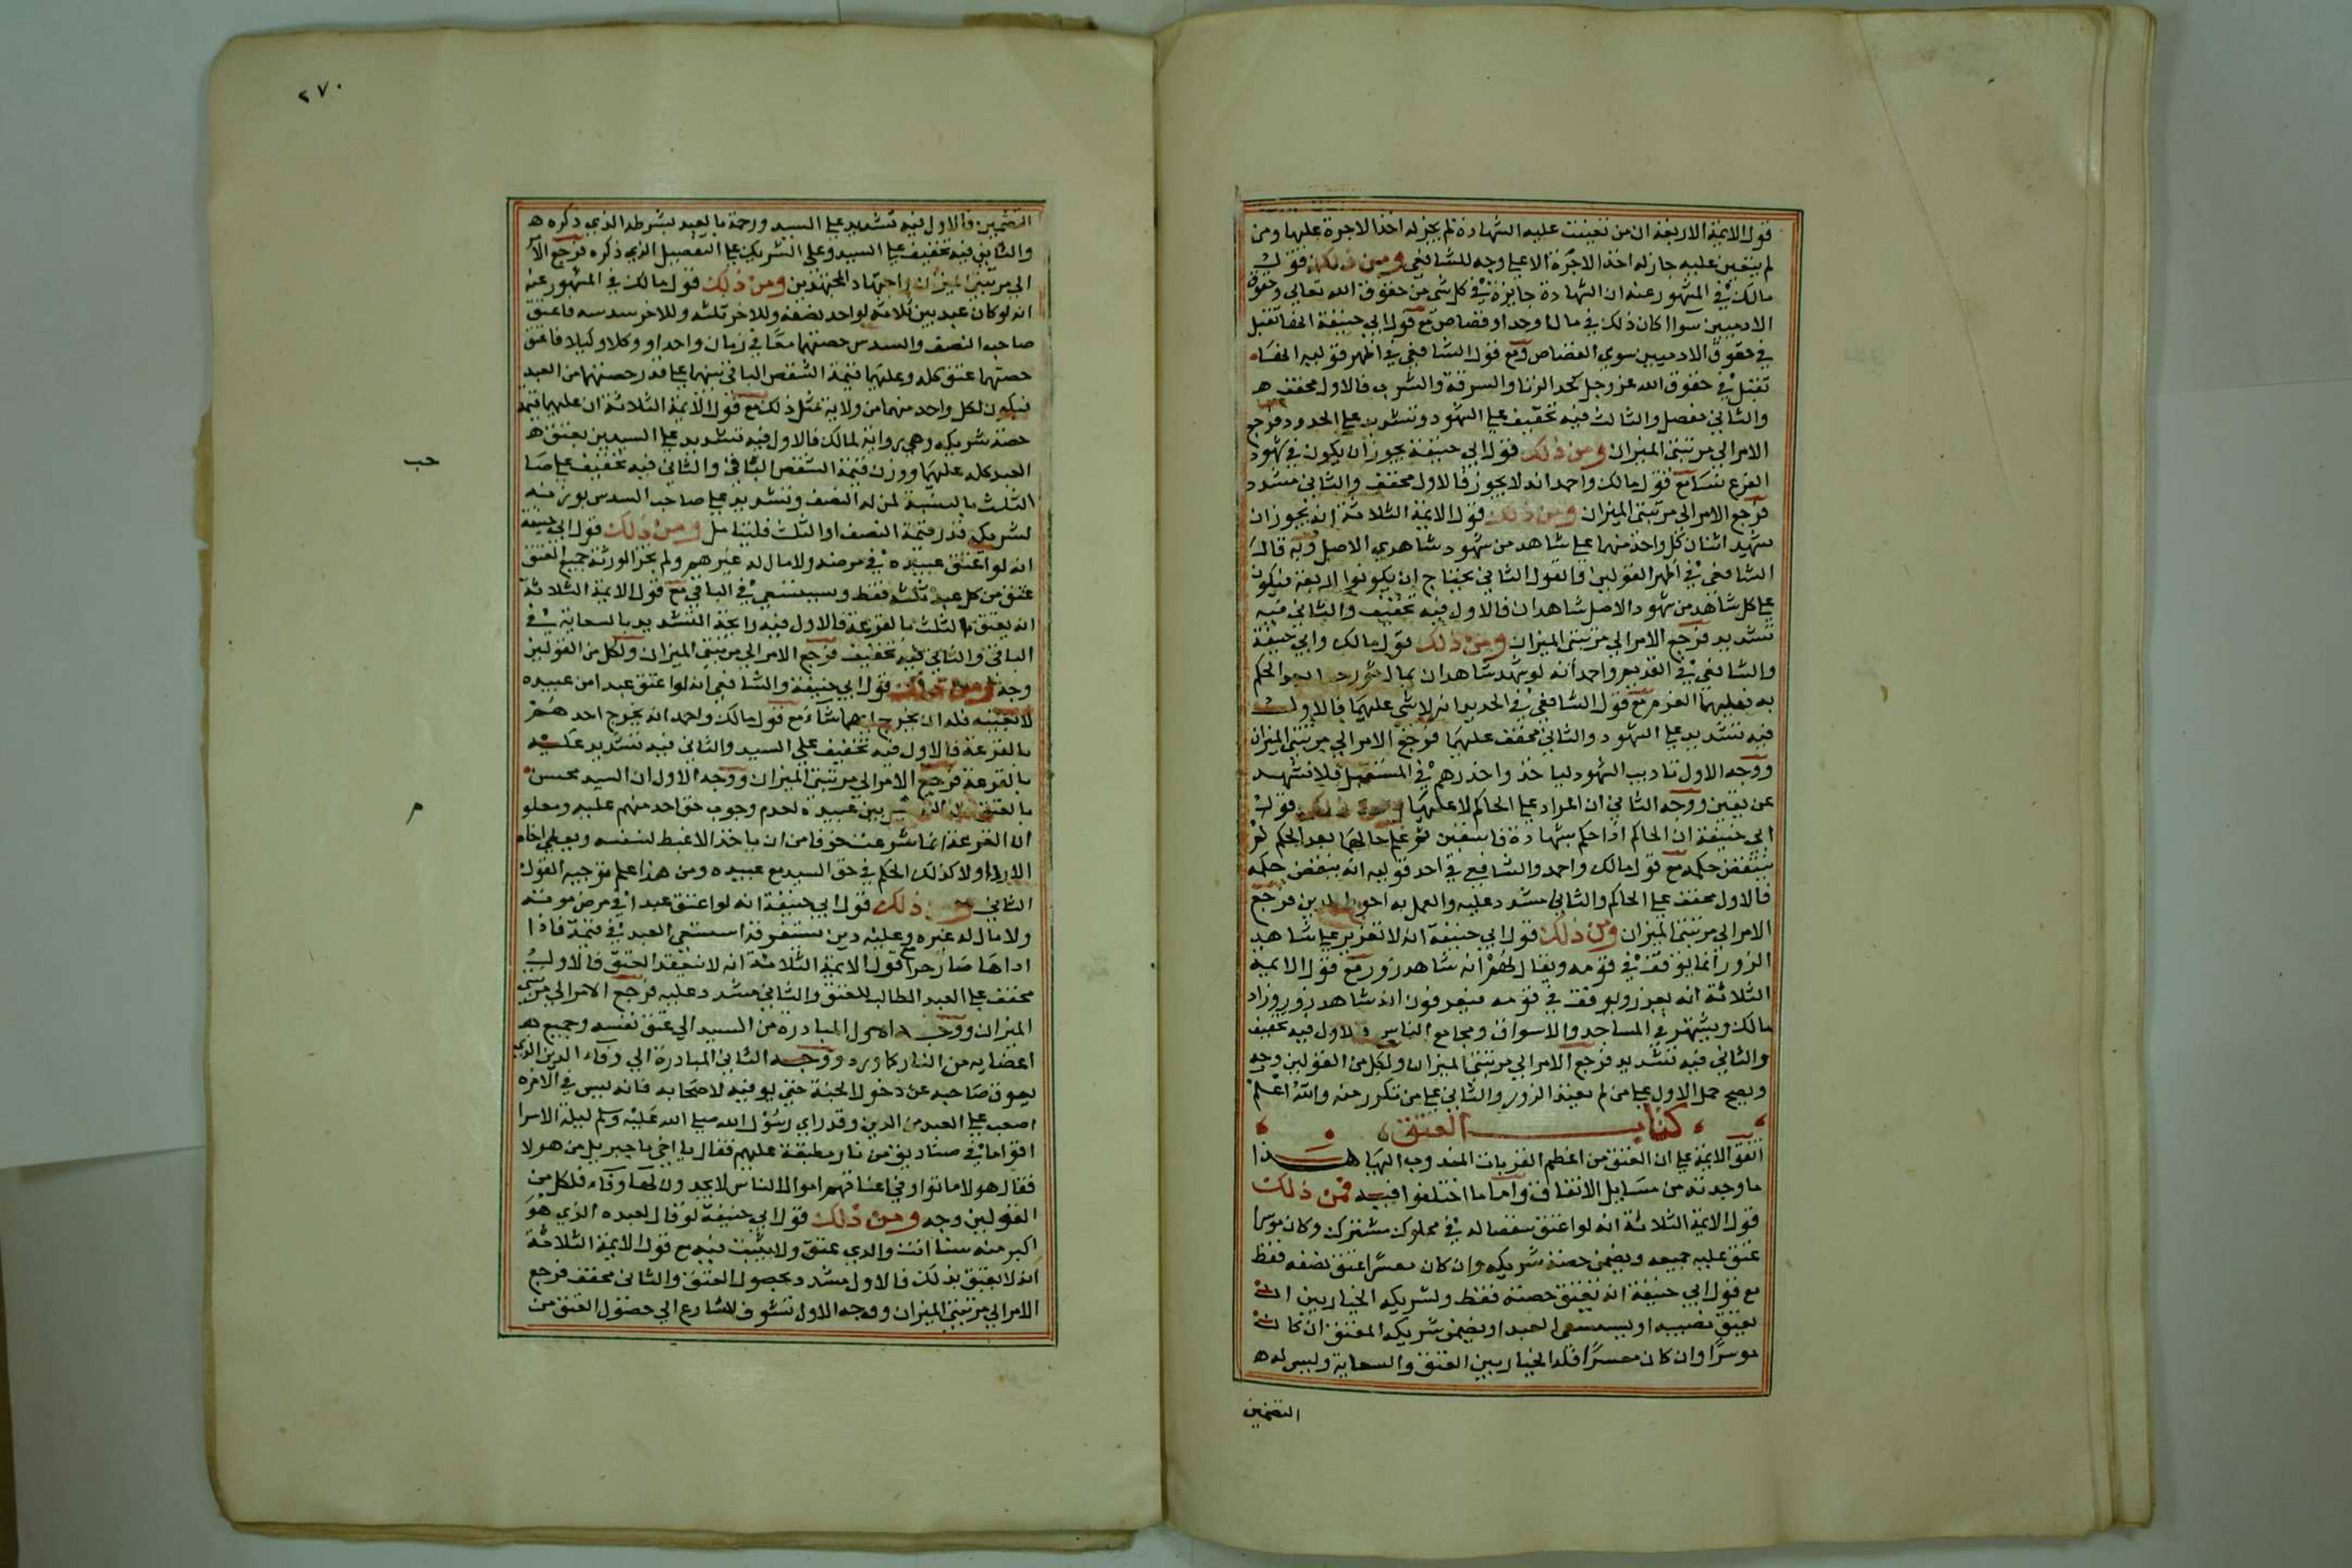 قول الايمة الاربعة ان من تعينت عليه الشهادة لم يجز له اخذ الاجرة عليها ومن
لم يتعين عليه جاز له اخذ الاجرة الا علي وجه للشافعي ومن ذلك قول
مالك في المشهور عنه ان الشهادة جايزة في كل شي من حقوق الله تعالي وحقوق
الادميين سوا اكان ذلك في مال او حد او قصاص مع قول ابي حنيفة انها تقبل
في حقوق الادميين سوي القصاص ومع قول الشافعي في اظهر قوليه انها
تقبل في حقوق الله عز وجل كحد الزنا والسرقة والشرب فالاول مخفف
والثاني مفصل والثالث فيه تخفيف علي الشهود وتشديد علي الحدود فرجع
الامر الي مرتبتي الميزان ومن ذلك قول ابي حنيفة يجوز ان يكون في شهود
الفرع نسا مع قول مالك واحمد انه لا يجوز فالاول مخفف والثاني مشدد
فرجع الامر الي مرتبتي الميزان ومن ذلك قول الايمة الثلاثة انه يجوز ان
يشهد اثنان كل واحد منهما علي شاهد من شهود شاهدي الاصل وبه قال
الشافعي في اظهر القولين والقول الثاني يحتاج ان يكونوا اربعة فيكون
علي كل شاهد من شهود الاصل شاهدان فالاول فيه تخفيف والثاني فيه
تشديد فرجع الامر الي مرتبتي الميزان ومن ذلك قول مالك وابي حنيفة
والشافعي في القديم واحمد انه لو شهد شاهدان بمال ثم رجعا بعد الحكم
به فعليهما الغرم مع قول الشافعي في الجديد انه لا شي عليهما فالاول
فيه تشديد علي الشهود والثاني مخفف عليهما فرجع الامر الي مرتبتي الميزان
ووجه الاول تاديب الشهود لياخذوا حذرهم في المستقبل فلا تشهد
عن يقين ووجه الثاني ان المراد علي الحاكم لا عليهما ومن ذلك قول
ابي حنيفة ان الحاكم اذا حكم بشهادة فاسقين ثم علم حالهما بعد الحكم لم
ينتقض حكمه مع قول مالك واحمد والشافعي في احد قوليه انه ينقض حكمه
فالاول مخفف علي الحاكم والثاني مشدد عليه والعمل به احوط للدين فرجع
الامر الي مرتبتي الميزان ومن ذلك قول ابي حنيفة انه لا تعزير علي شاهد
الزور انما يوقف في قومه ويقال لهم انه شاهد زور مع قول الايمة
الثلاثة انه يعزر ويوقف في قومه فيعرفون انه شاهد زور وزاد
مالك ويشهر في المساجد والاسواق ومجامع الناس فالاول فيه تخفيف
والثاني فيه تشديد فرجع الامر الي مرتبتي الميزان ولكل من القولين وجه
ويصح حمل الاول علي من لم يعتد الزور والثاني علي من تكرر منه والله اعلم
كتاب العتق
اتفق الايمة علي ان العتق من اعظم القربات المندوب اليها هذا
ما وجدته من مسايل الاتفاق واما ما اختلفوا فيه فمن ذلك
قول الايمة الثلاثة انه لو اعتق شقصا له في مملوك مشترك وكان موسرا
عتق عليه جميعه ويضمن حصة شريكه وان كان معسرا عتق نصفه فقط
مع قول ابي حنيفة انه يعتق حصته فقط ولشريكه الخيار بين ان
يعتق نصيبه او يستسعي العبد او يضمن شريكه المعتق ان كان
موسرا وان كان معسرا فله الخيار بين العتق والسعاية وليس له
التضمين
٢٧٠
التضمين فالاول فيه تشديد علي السيد ورحمة بالعبد بشرطه الذي ذكره
والثاني فيه تخفيف علي السيد وعلي الشريك علي التفصيل الذي ذكره فرجع الامر
الي مرتبتي الميزان واجتهاد المجتهدين ومن ذلك قول مالك في المشهور عنه
انه لو كان عبد بين ثلاثة لواحد نصفه وللاخر ثلثه وللاخر سدسه فاعتق
صاحب النصف والسدس حصتهما معا في زمان واحد او وكلا وكيلا فاعتق
حصتهما عتق كله وعليهما قيمة الشقص الباقي بينهما علي قدر حصتهما من العبد
فيكون لكل واحد منهما من ولايه مثل ذلك مع قول الايمة الثلاثة ان عليهما قيمة
حصة شريكه وهي رواية لمالك فالاول فيه تشديد علي السيدين بعتق
العبد كله عليهما ووزن قيمة الشقص الباقي والثاني فيه تخفيف علي صا
حب
الثلث بالنسبة لمن له النصف وتشديد علي صاحب السدس بوزنه
لشريكه قدر قيمة النصف او الثلث فليتامل ومن ذلك قول ابي حنيفة
انه لو اعتق عبيده في مرضه ولا مال له غيرهم ولم يجز الورثة جميع العتق
عتق من كل عبد ثلثه فقط ويستسعي في الباقي مع قول الايمة الثلاثة
انه يعتق الثلث بالقرعة فالاول فيه رايحة التشديد بالسعاية في
الباقي والثاني فيه تخفيف فرجع الامر الي مرتبتي الميزان ولكل من القولين
وجه ومن ذلك قول ابي حنيفة والشافعي انه لو اعتق عبدا من عبيده
لا بعينه فله ان يخرج ايهما شاء مع قول مالك واحمد انه يخرج احدهم
بالقرعة فالاول فيه تخفيف علي السيد والثاني فيه تشديد عليه
بالقرعة فرجع الامر الي مرتبتي الميزان ووجه الاول ان السيد محسن
بالعتق بين عبيده لعدم وجوب حق احد منهم عليه ومعلو
م
ان القرعة انما شرعت خوفا من ان ياخذ الاغبط لنفسه ويعطي اخاه
الاردا ولا كذلك الحكم في حق السيد مع عبيده ومن هذا علم توجيه القول
الثاني ومن ذلك قول ابي حنيفة انه لو اعتق عبدا في مرض موته
ولا مال له غيره وعليه دين يستغرقه استسعي العبد في قيمته فاذا
اداها صار حرا مع قول الايمة الثلاثة انه لا ينعقد العتق فالاول
مخفف علي العبد الطالب للعتق والثاني مشدد عليه فرجع الامر الي مرتبتي
الميزان ووجه الاول المبادرة من السيد الي عتق نفسه وجميع
اعضايه من النار كما ورد ووجه الثاني المبادرة الي وفاء الدين الذي
يعوق صاحبه عن دخول الجنة حتي يوفيه لاصحابه فانه ليس في الاخره
اصعب علي العبد من الدين وقد راي رسول الله صلي الله عليه وسلم ليلة الاسرا
اقواما في صناديق من نار مطبقة عليهم فقال يا اخي يا جبريل من هولا
فقال هولا ماتوا وفي اعناقهم اموال الناس لا يجدون لها وفاء فلكل من
القولين وجه ومن ذلك قول ابي حنيفة لو قال لعبده الذي هو
اكبر منه سنا انت والدي عتق ولا يثبت نسبه مع قول الايمة الثلاثة
انه لا يعتق بذلك فالاول مشدد بحصول العتق والثاني مخفف فرجع
الامر الي مرتبتي الميزان ووجه الاول تشوف الشارع الي حصول العتق من